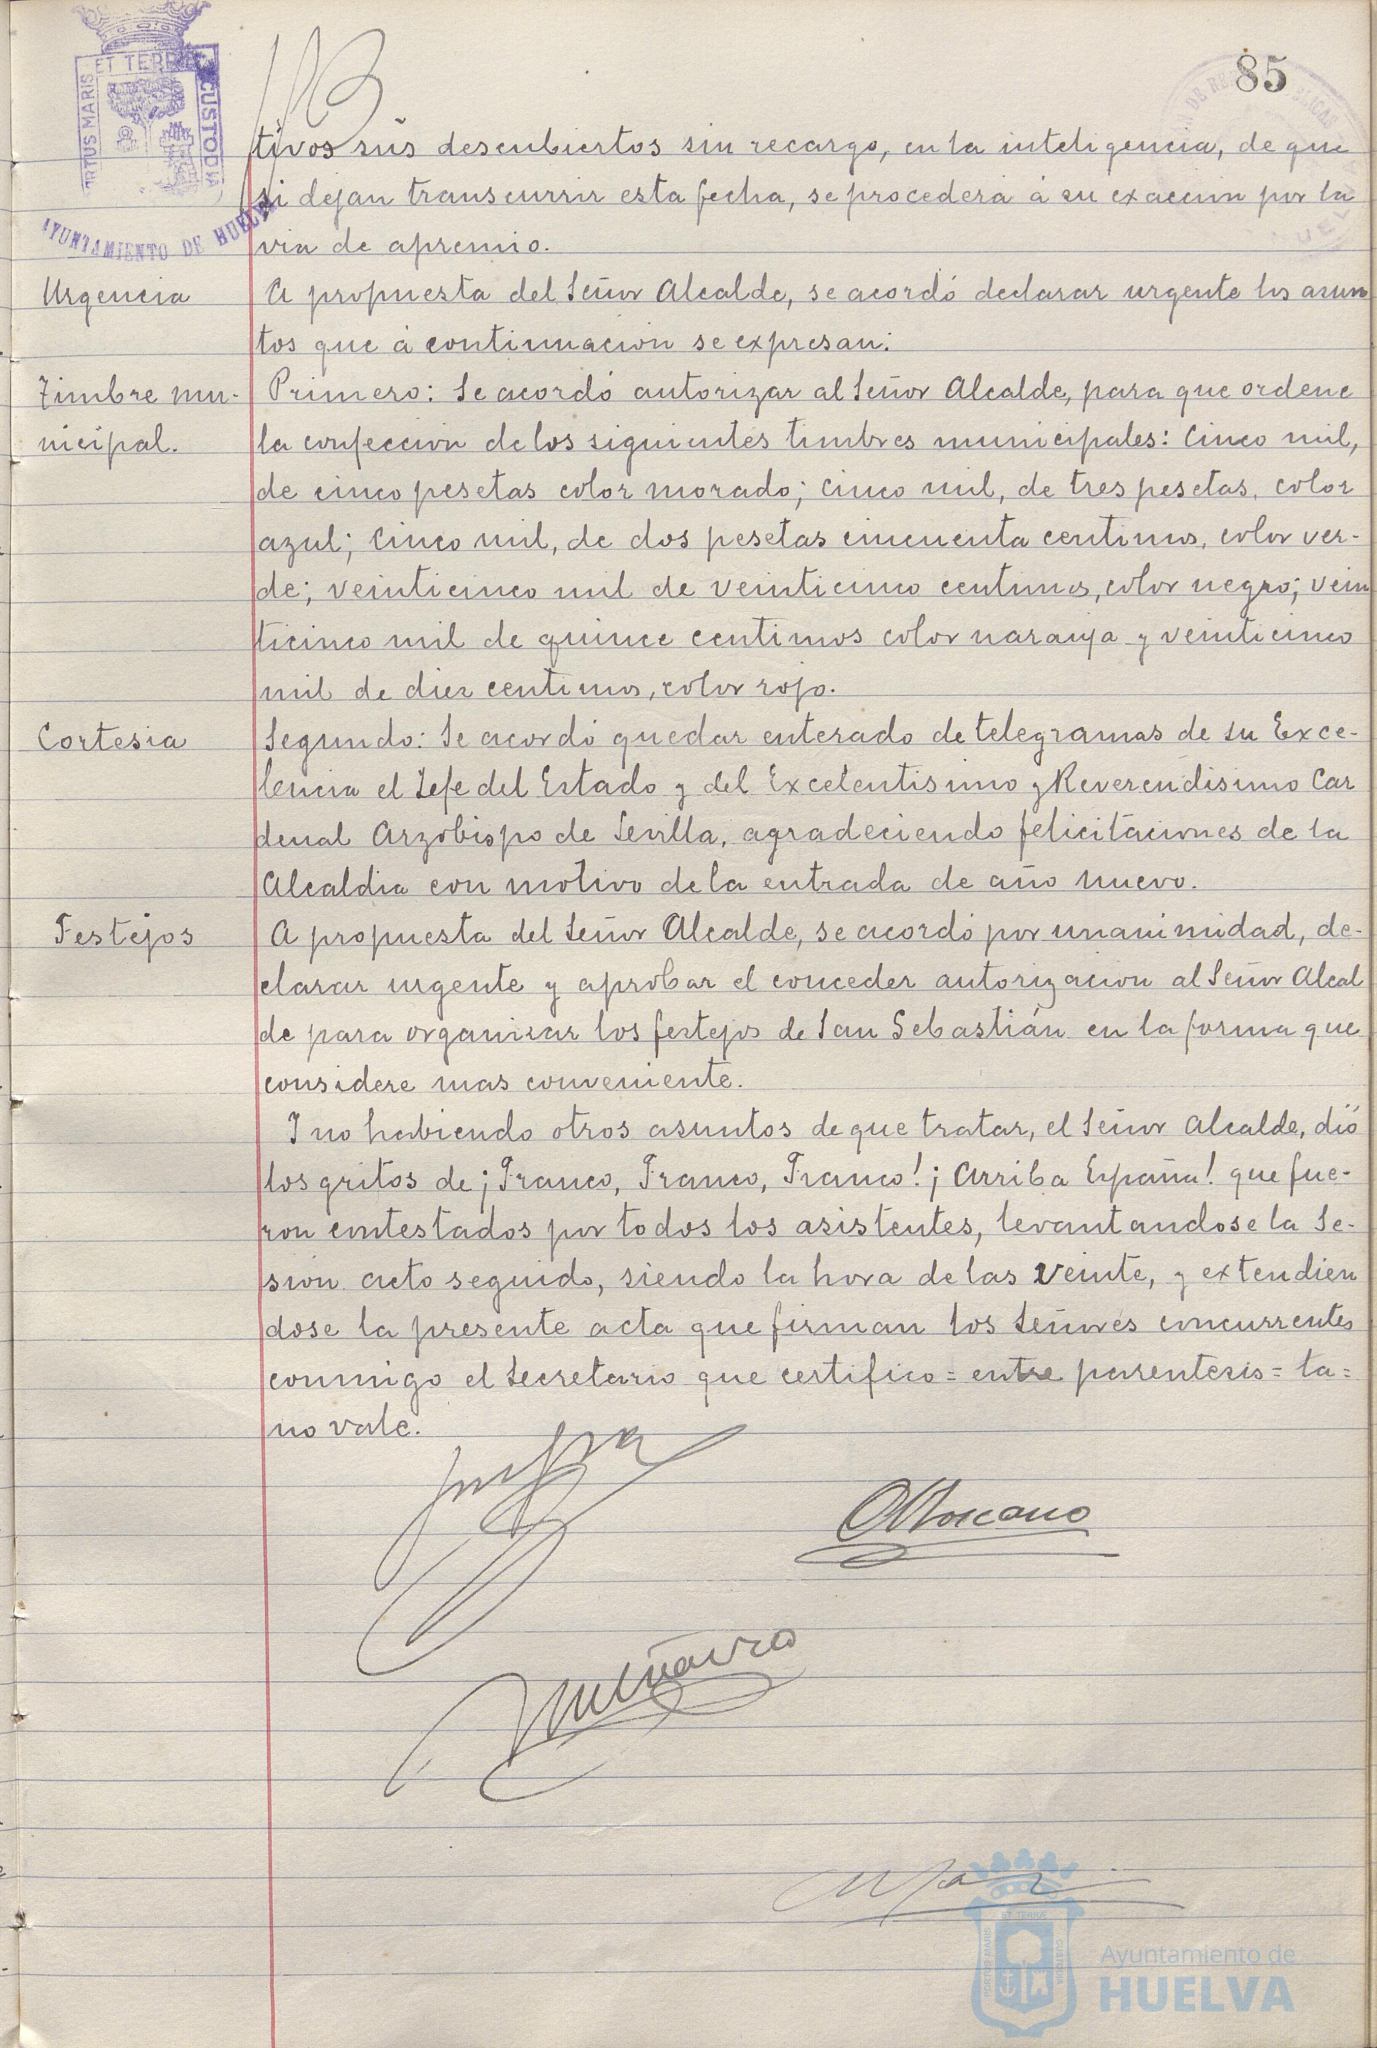 85
ET TERRE
CUSTODIA
AYUNTAMIENTO DE HUELVA
tivos sus descubiertos sin recargo, en la inteligencia, de que
si dejan transcurrir esta fecha, se procederá á su exaccion por la
via de apremio.
Urgencia
A propuesta del Señor Alcalde, se acordó declarar urgente los asun
tos que á continuacion se expresan:
Timbre mu-
nicipal.
Primero: Se acordó autorizar al Señor Alcalde, para que ordene
la confeccion de los siguientes timbres municipales: Cinco mil,
de cinco pesetas color morado; cinco mil, de tres pesetas, color
azul; cinco mil, de dos pesetas cincuenta centimos, color ver-
de; veinticinco mil de veinticinco centimos, color negro; vein
ticinco mil de quince centimos color naranja y veinticinco
mil de diez centimos, color rojo.
Cortesia
Segundo: Se acordó quedar enterado de telegramas de su Exce-
lencia el Jefe del Estado y del Excelentisimo y Reverendisimo Car
denal Arzobispo de Sevilla, agradeciendo felicitaciones de la
Alcaldia con motivo de la entrada de año nuevo.
Festejos
A propuesta del Señor Alcalde, se acordó por unanimidad, de-
clarar urgente y aprobar el conceder autorizacion al Señor Alcal
de para organizar los festejos de San Sebastián en la forma que
considere mas conveniente.
Y no habiendo otros asuntos de que tratar, el Señor Alcalde, dió
los gritos de ¡Franco, Franco, Franco! ¡Arriba España! que fue-
ron contestados por todos los asistentes, levantandose la Se-
sion acto seguido, siendo la hora de las veinte, y extendien
dose la presente acta que firman los Señores concurrentes
conmigo el Secretario que certifico = entre parentesis = la =
no vale.
Toscano
Ayuntamiento de
HUELVA